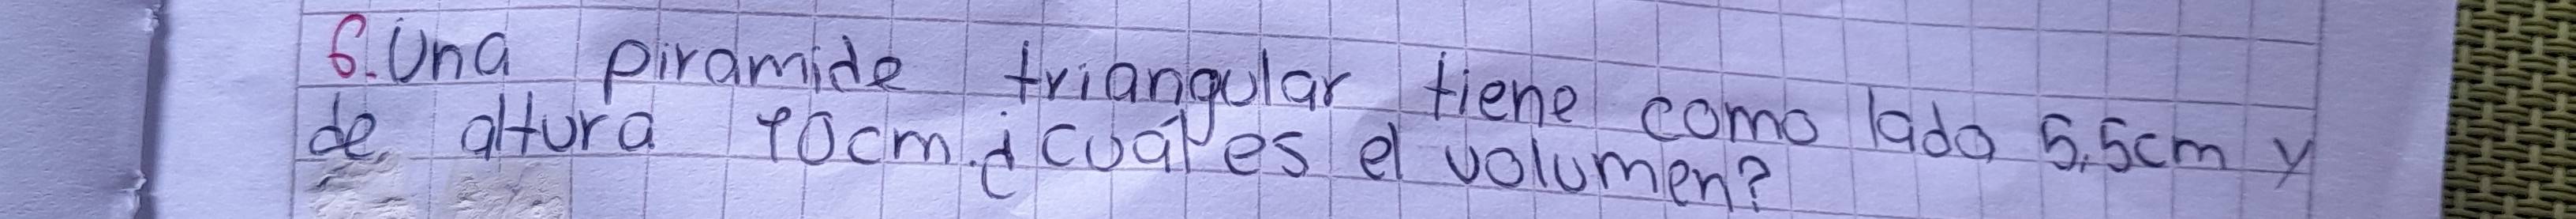 6. Una piramide triangular tiene como lado 5,5cm y
de altura 10cm. ¿cual es el volumen?